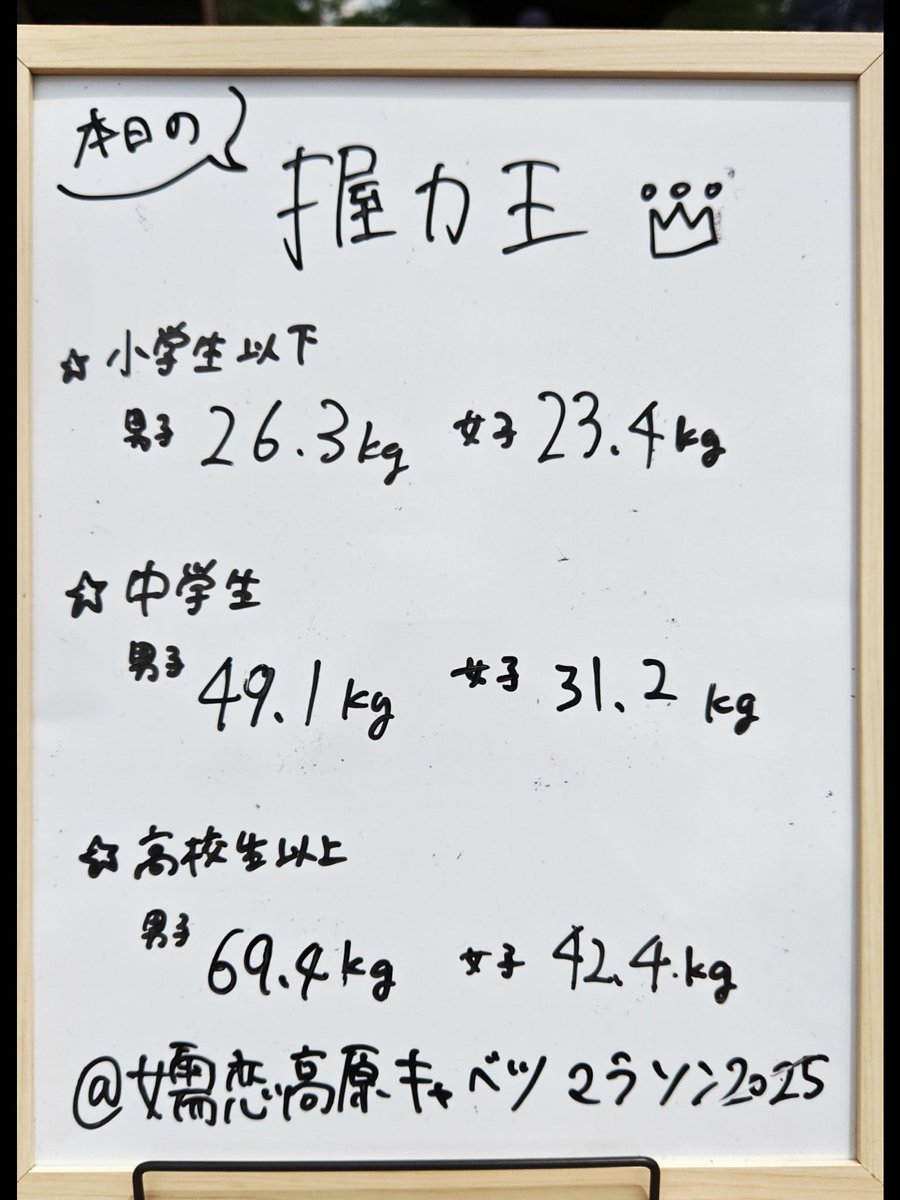 本日の
握力王
☆小学生以下
男子 26.3kg 女子 23.4kg
☆中学生
男子 49.1kg 女子 31.2kg
☆高校生以上
男子 69.4kg 女子 42.4kg
@嬬恋高原キャベツマラソン2025